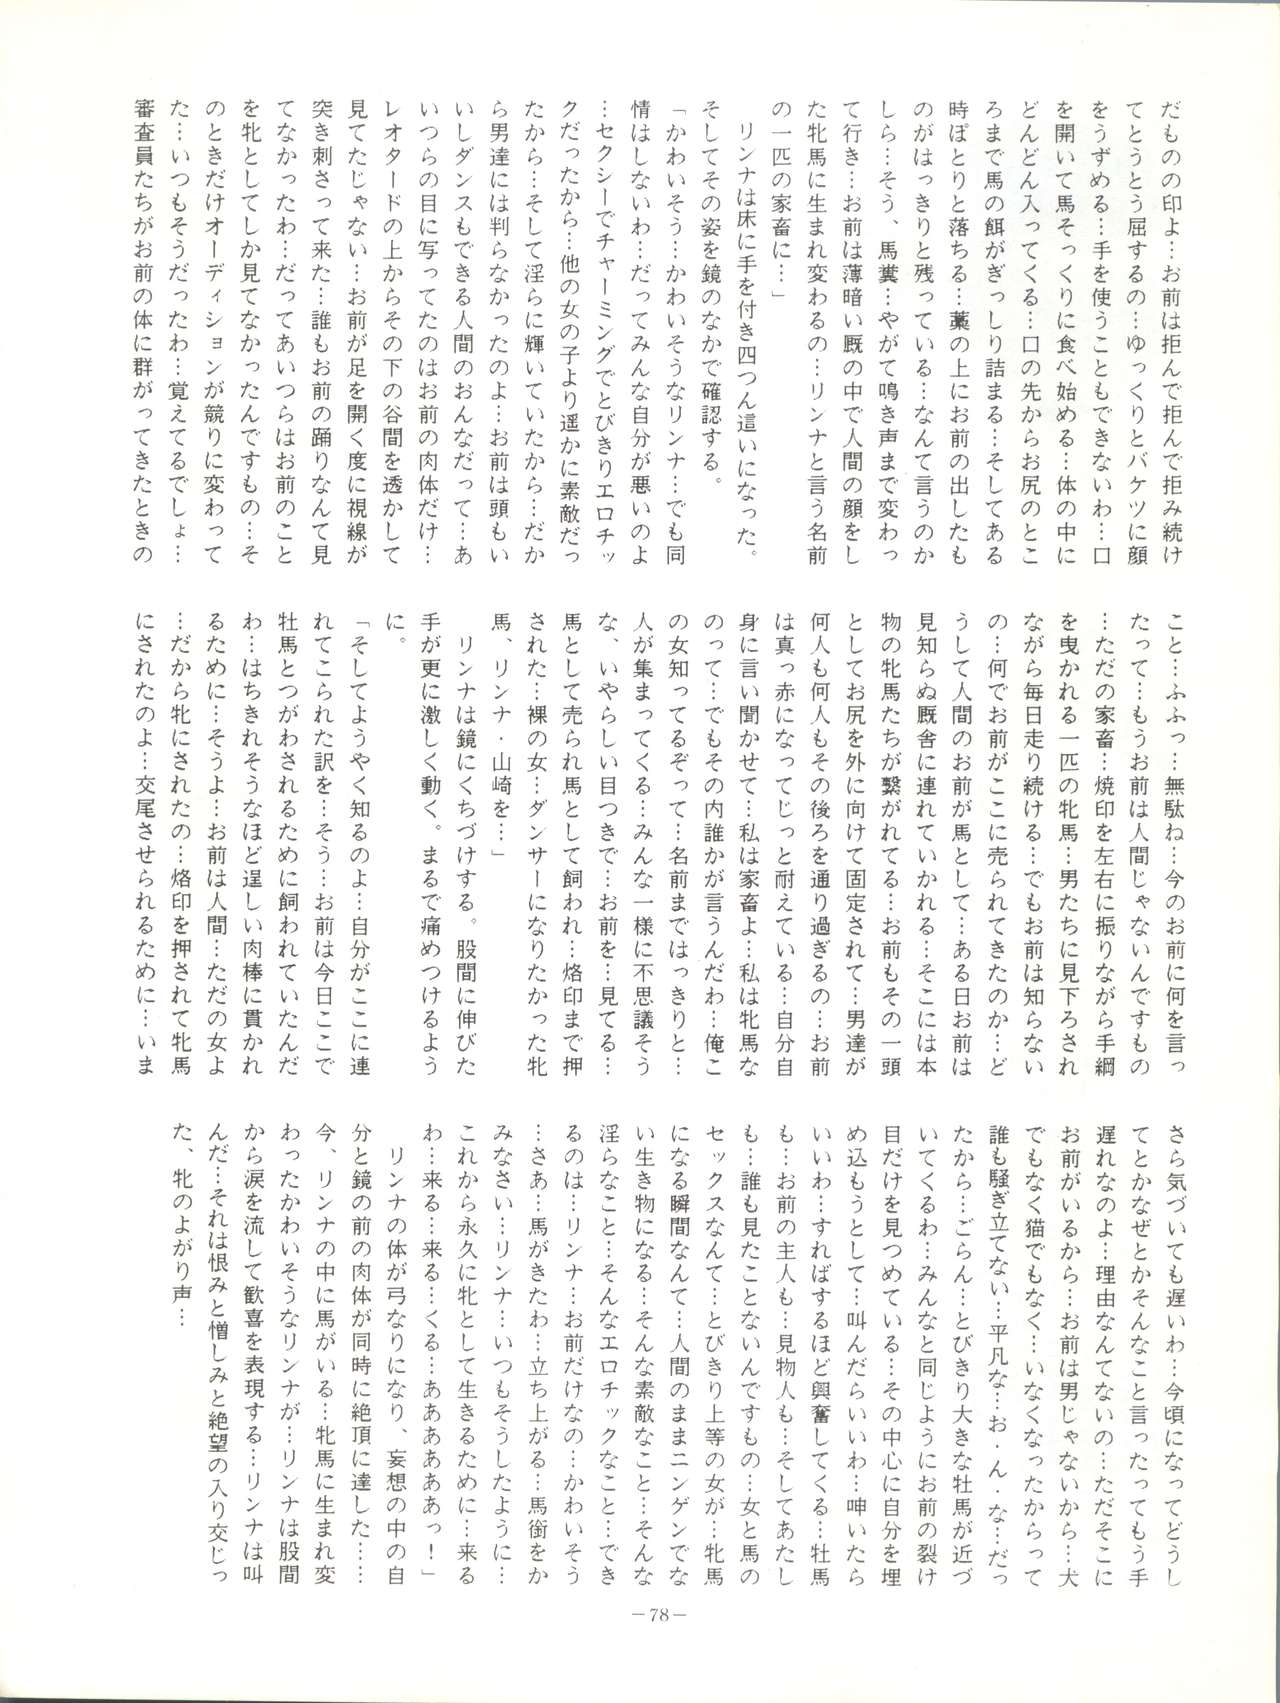 だものの印よ…お前は拒んで拒んで拒み続け
てとうとう屈するの…ゆっくりとバケツに顔
をうずめる…手を使うこともできないわ…口
を開いて馬そっくりに食べ始める…体の中に
どんどん入ってくる…口の先からお尻のとこ
ろまで馬の餌がぎっしり詰まる…そしてある
時ぽとりと落ちる…藁の上にお前の出したも
のがはっきりと残っている…なんて言うのか
しら…そう、馬糞…やがて鳴き声まで変わっ
て行き…お前は薄暗い厩の中で人間の顔をし
た牝馬に生まれ変わるの…リンナと言う名前
の一匹の家畜に…」
リンナは床に手を付き四つん這いになった。
そしてその姿を鏡のなかで確認する。
「かわいそう…かわいそうなリンナ…でも同
情はしないわ…だってみんな自分が悪いのよ
…セクシーでチャーミングでとびきりエロチッ
クだったから…他の女の子より遥かに素敵だっ
たから…そして淫らに輝いていたから…だか
ら男達には判らなかったのよ…お前は頭もい
いしダンスもできる人間のおんなだって…あ
いつらの目に写ってたのはお前の肉体だけ…
レオタードの上からその下の谷間を透かして
見てたじゃない…お前が足を開く度に視線が
突き刺さって来た…誰もお前の踊りなんて見
てなかったわ…だってあいつらはお前のこと
を牝としてしか見てなかったんですもの…そ
のときだけオーディションが競りに変わって
た…いつもそうだったわ…覚えてるでしょ…
審査員たちがお前の体に群がってきたときの
こと…ふふっ…無駄ね…今のお前に何を言っ
たって…もうお前は人間じゃないんですもの
…ただの家畜…焼印を左右に振りながら手綱
を曳かれる一匹の牝馬…男たちに見下ろされ
ながら毎日走り続ける…でもお前は知らない
の…何でお前がここに売られてきたのか…ど
うして人間のお前が馬として…ある日お前は
見知らぬ厩舎に連れていかれる…そこには本
物の牝馬たちが繋がれてる…お前もその一頭
としてお尻を外に向けて固定されて…男達が
何人も何人もその後ろを通り過ぎるの…お前
は真っ赤になってじっと耐えている…自分自
身に言い聞かせて…私は家畜よ…私は牝馬な
のって…でもその内誰かが言うんだわ…俺こ
の女知ってるぞって…名前まではっきりと…
人が集まってくる…みんな一様に不思議そう
な、いやらしい目つきで…お前を…見てる…
馬として売られ馬として飼われ…烙印まで押
された…裸の女…ダンサーになりたかった牝
馬、リンナ・山崎を…」
リンナは鏡にくちづけする。股間に伸びた
手が更に激しく動く。まるで痛めつけるよう
に。
「そしてようやく知るのよ…自分がここに連
れてこられた訳を…そう…お前は今日ここで
牡馬とつがわされるために飼われていたんだ
わ…はちきれそうなほど逞しい肉棒に貫かれ
るために…そうよ…お前は人間…ただの女よ
…だから牝にされたの…烙印を押されて牝馬
にされたのよ…交尾させられるために…いま
さら気づいても遅いわ…今頃になってどうし
てとかなぜとかそんなこと言ったってもう手
遅れなのよ…理由なんてないの…ただそこに
お前がいるから…お前は男じゃないから…犬
でもなく猫でもなく…いなくなったからって
誰も騒ぎ立てない…平凡な…お・ん・な…だっ
たから…ごらん…とびきり大きな牡馬が近づ
いてくるわ…みんなと同じようにお前の裂け
目だけを見つめている…その中心に自分を埋
め込もうとして…叫んだらいいわ…呻いたら
いいわ…すればするほど興奮してくる…牡馬
も…お前の主人も…見物人も…そしてあたし
も…誰も見たことないんですもの…女と馬の
セックスなんて…とびきり上等の女が…牝馬
になる瞬間なんて…人間のままニンゲンでな
い生き物になる…そんな素敵なこと…そんな
淫らなこと…そんなエロチックなこと…でき
るのは…リンナ…お前だけなの…かわいそう
…さあ…馬がきたわ…立ち上がる…馬銜をか
みなさい…リンナ…いつもそうしたように…
これから永久に牝として生きるために…来る
わ…来る…来る…くる…ああああああっ！」
リンナの体が弓なりになり、妄想の中の自
分と鏡の前の肉体が同時に絶頂に達した……
今、リンナの中に馬がいる…牝馬に生まれ変
わったかわいそうなリンナが…リンナは股間
から涙を流して歓喜を表現する…リンナは叫
んだ…それは恨みと憎しみと絶望の入り交じっ
た、牝のよがり声…
－78－